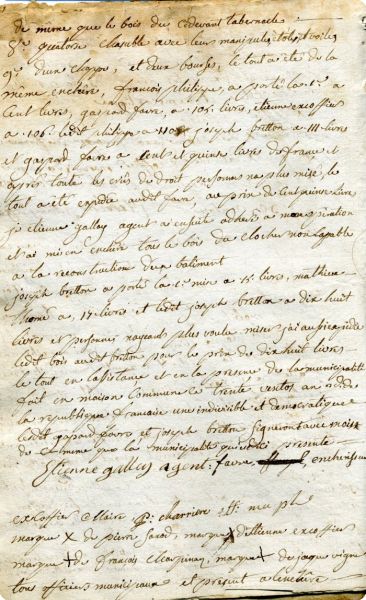 de meme que le bois du cedevant tabernacle
8° quatorse chasuble avec leurs manipules etoles et voiles
9° d'une chappe, et deux bourses, le tout a eté de la
même enchere, françois philippe, a porté la 1re a
cent livres, gaspard favre, a 105. livres, etienne excoffier
a 106. ledit philippe a 110# joseph bretton a 111 livres
et gaspard favre a cent et quinse livres de france et
après toute les criés de droit personne na plus misé, le
tout a été expedié audit favre, au prix de cent quinse livre
je etienne galley agent ai ensuite adheré a
et j'ai mis en enchere tous le bois du clocher non capable
a la reconstruction d'un batiment
joseph bretton a porté la 1re mise a 15. livres, mathieu
a 17 livres et ledit joseph bretton a dix huit
livres et personne nayant plus voulu miser j'ai
ledit bois audit bretton pour le prix de dix huit livres
le tout en l'assistance et en la presence de la municipalité
fait en maison commune le trente ventos an 2d de
la republique francaise une indivisible et democratique
ledit gaspard favre et joseph bretton signeront avec moi
de meme que la municipalité presente
Etienne galley agent. favre encherisseur
excoffier Maire P: charriere
marque X de pierre favod, marque X d'etienne excoffier
marque + de françois, marque + de jaque vigne
tous officiers municipaux et present a lenchere